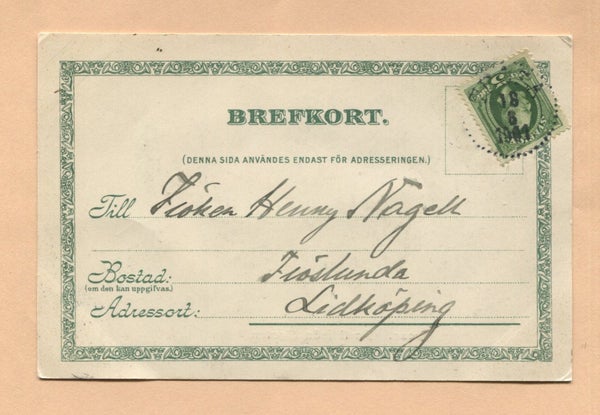 BREFKORT.
(DENNA SIDA ANVÄNDES ENDAST FÖR ADRESSERINGEN.)
Till Fröken Henny Nagell
Bostad: Fröslunda
(om den kan uppgifvas.)
Adressort: Lidköping
18
6